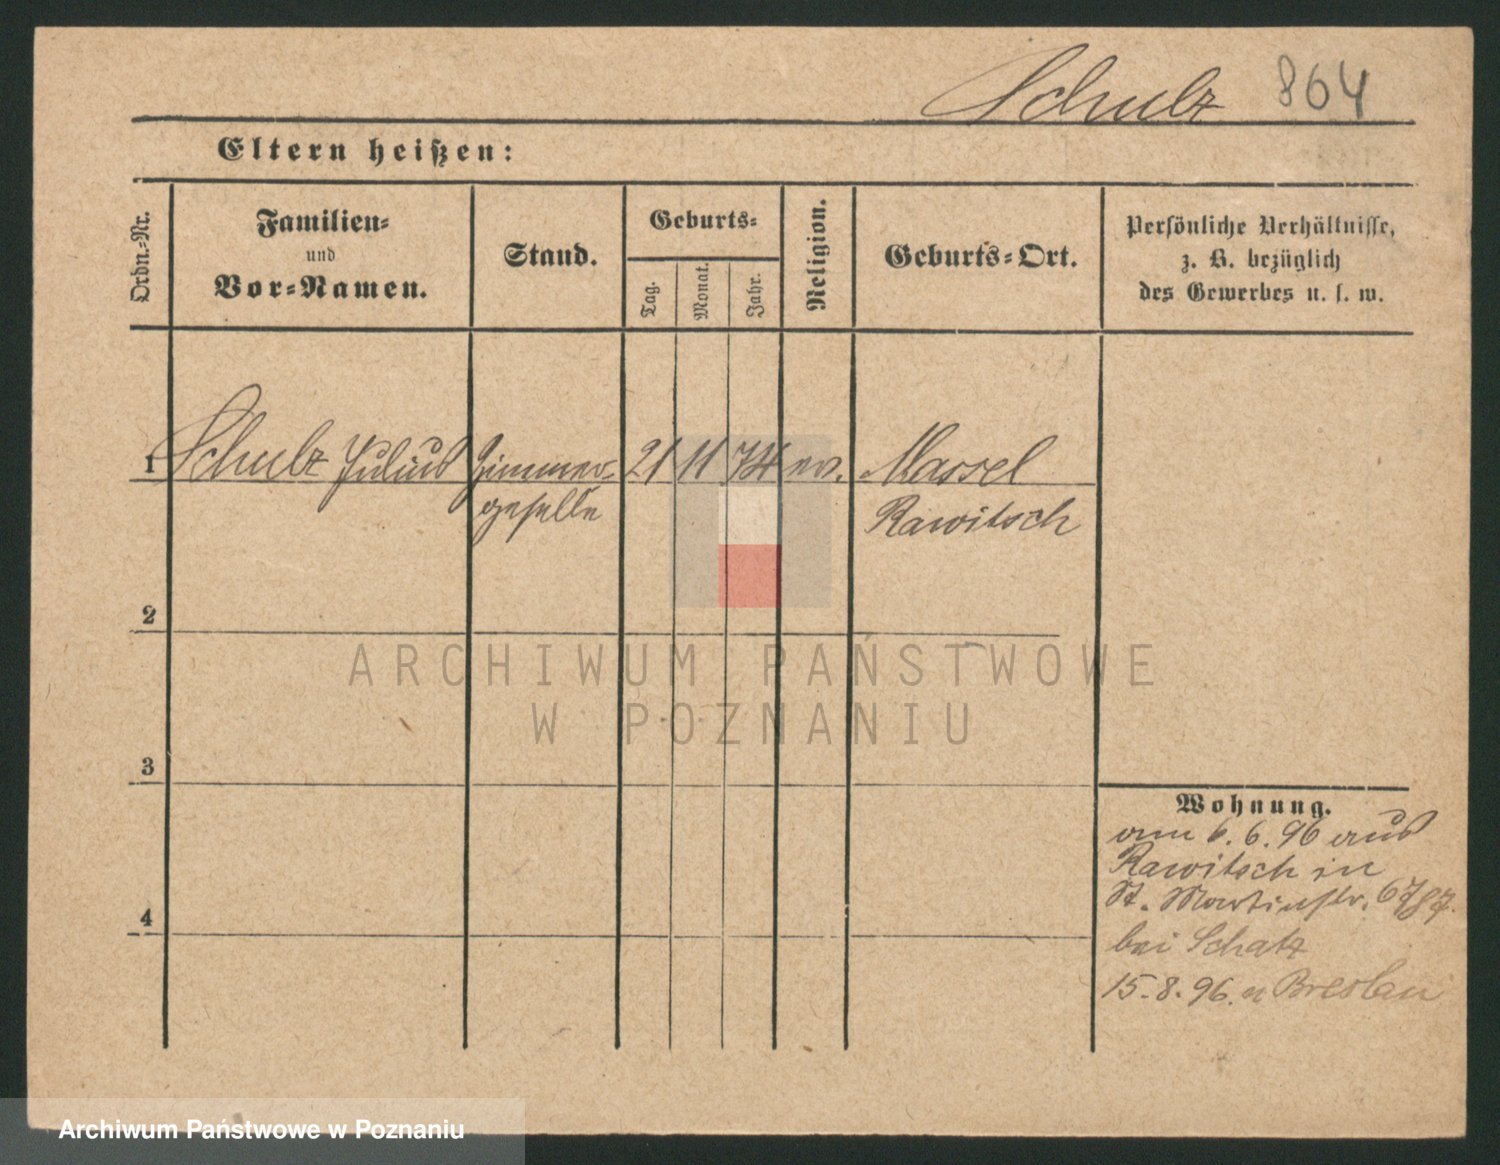 Schulz 864
Eltern heißen:
Ordn.-Nr.
Familien-
und
Vor-Namen.
Stand.
Geburts-
Tag.
Monat.
Jahr.
Religion.
Geburts-Ort.
Persönliche Verhältnisse,
z. B. bezüglich
des Gewerbes u. s. w.
1 Schulz Julius Zimmer- 21 11 74 ev. Massel
geselle Rawitsch
2
3
4
Wohnung.
am 6.6.96 aus
Rawitsch in
St. Martinstr. 67
bei Schatz
15.8.96. n Breslau
ARCHIWUM PAŃSTWOWE
W POZNANIU
Archiwum Państwowe w Poznaniu